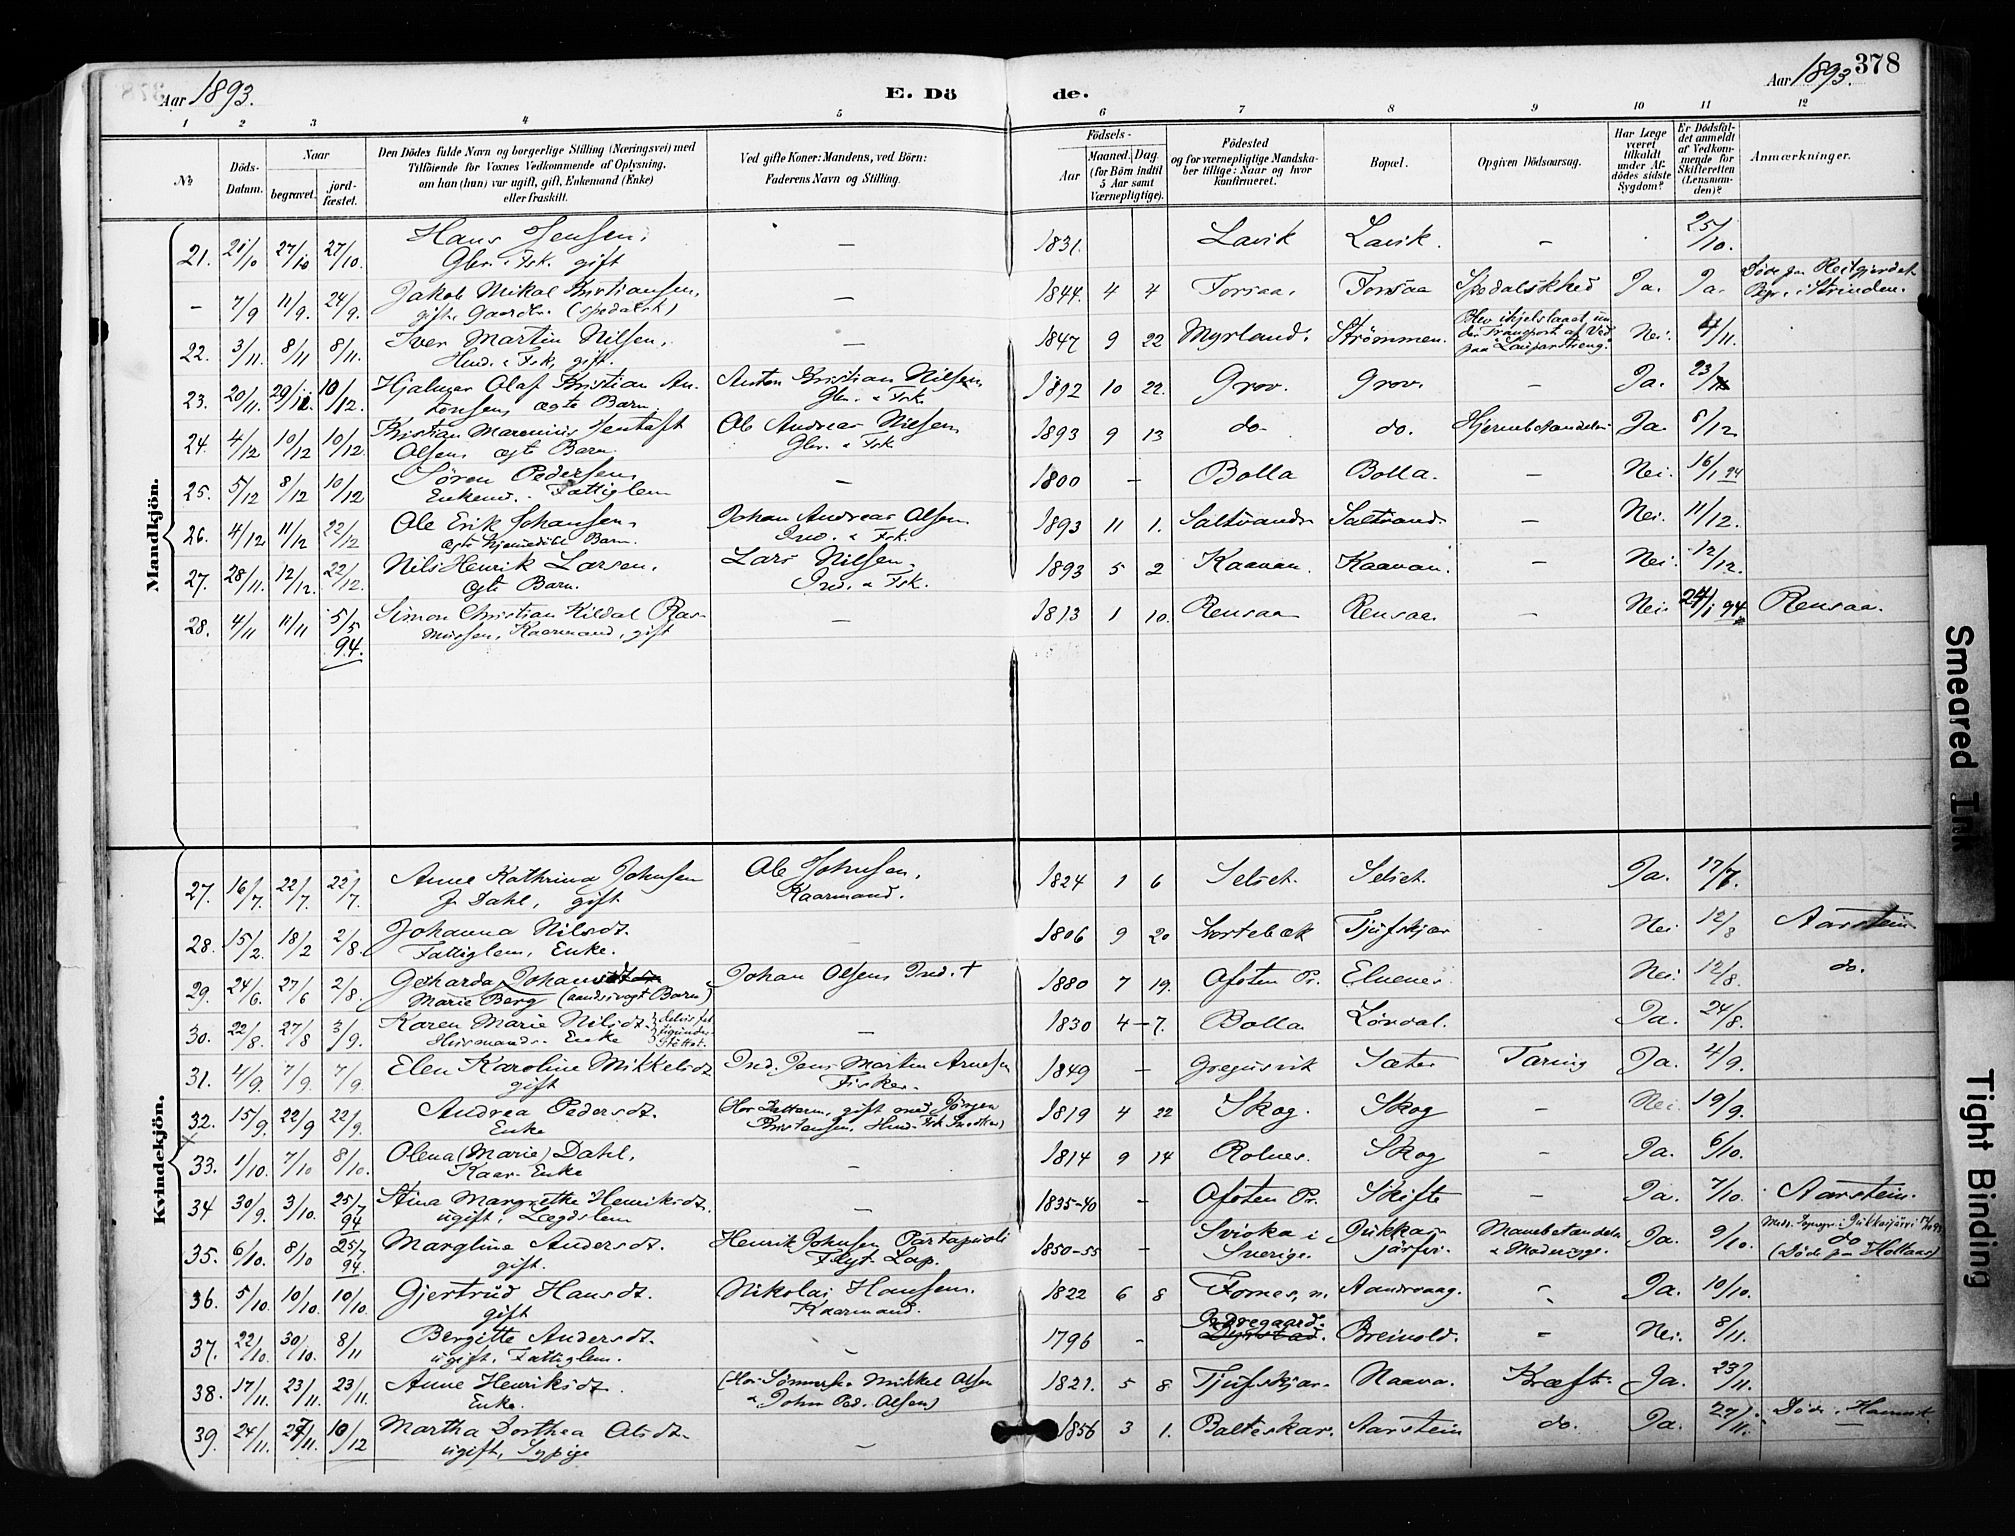 378
Aar 1893.
E. Dö de.
Aar 1893.
1 2 3 4 5 6 7 8 9 10 11 12
№
Döds-Datum.
Naar
begravet.
jord-fæstet.
Den Dödes fulde Navn og borgerlige Stilling (Næringsvei) med
Tilföiende for Voxnes Vedkommende af Oplysning,
om han (hun) var ugift, gift, Enkemand (Enke)
eller fraskilt.
Ved gifte Koner: Mandens, ved Börn:
Faderens Navn og Stilling.
Födsels-
Aar
Maaned. Dag
(for Börn indtil
5 Aar samt
Værnepligtige).
Födested
og for værnepligtige Mandska-
ber tillige: Naar og hvor
konfirmeret.
Bopæl.
Opgiven Dödsaarsag.
Har Læge
været
tilkaldt
under Af-
dödes sidste
Sygdom?
Er Dödsfal-
det anmeldt
af Vedkom-
mende for
Skifteretten
(Lensman-
den)?
Anmærkninger.
Mandkjön.
21. 21/10 27/10 27/10. Hans Jensen, — 1831. Lavik Lavik. — 25/10.
Gbr. & Fsk. gift
— 7/9 11/9. 24/9. Jakob Mikal Kristiansen, — 1844. 4 4 Forsaa. Forsaa Spedalskhed Ja. Ja. Döde paa Reitgjerdet
gift. Gaardbr. (spedalsk) Begr. i Strinden.
22. 3/11. 8/11 8/11. Iver Martin Nilsen, — 1847 9 22 Myrland. Strömmen. Blev ihjelslaaet un- Nei. 4/11.
Hmd. & Fsk, gift. der Transport af Ved
23. 20/11. 29/11. 10/12. Hjalmar Olaf Kristian An- Anton Kristian Nilsen 1892 10 22. Grov. Grov. — Ja. 23/
tonsen, ægte Barn. Gbr. & Fsk.
24. 4/12 10/12 10/12. Kristian Marenius Ole Andreas Nilsen 1893 9 13 do. do. Hjernebetændelse Ja. 6/12
Olsen ægte Barn. Gbr. & Fsk
25. 5/12 8/12 10/12 Sören Pedersen, — 1800 — Bolla Bolla. — Nei. 16/1 94
Enkemd. Fattiglem
26. 4/12 11/12 22/12 Ole Erik Johansen, Johan Andreas Olsen 1893 11 1. Saltvand Saltvand. — Nei. 11/12.
ægte hjemmedöbt Barn. Ind. & Fsk.
27. 28/11. 12/12. 22/12. Nils Henrik Larsen, Lars Nilsen. 1893 5 2 Kaavan. Kaavan. — Nei. 12/12.
ægte Barn. Ind. & Fsk.
28. 4/11 11/11 5/5 94. Simon Christian Kildal Ras- — 1813 1 10. Rensaa Rensaa. — Nei. 24/1 94 Rensaa.
mussen, Kaarmand, gift
Kvindekjön.
27. 16/7. 22/7. 22/7. Anne Kathrina Johnsen Ole Johnsen, 1824 1 6 Selset. Selset. Ja. 17/7.
f. Dahl, gift Kaarmand.
28. 15/2. 18/2 2/8. Johanna Nilsdt. — 1806 9 20 Sortebæk Tjufskjær Nei 12/8 Aarstein
Fattiglem, Enke.
29. 24/6. 27/6 2/8. Getharda Johansdtr Johan Olsen Ind. † 1880 7 19. Ofoten Pr. Elvenes. Nei. 12/8. do.
Marie Berg (aandsvagt Barn)
30. 22/8. 27/8 3/9. Karen Marie Nilsdt. delvis fat- — 1830 4 — 7. Bolla Löndal. Ja. 24/8.
Husmands- Enke tigunder-
stöttet.
31. 4/9. 7/9 7/9. Elen Karoline Mikkelsdt Ind. Jens Martin Arnesen 1849 — Gregusvik Sæter Tæring Ja. 4/9.
gift Fisker.
32. 15/9. 22/9 22/9. Andrea Pedersdt. gift med Jörgen 1819 4 22 Skog. Skog — Nei. 19/9.
Enke Kristansen, Hmd. Fsk
33. 1/10. 7/10 8/10. Olena (Marie) Dahl, — 1814 9 14 Rolnes. Skog — Ja. 6/10.
Kaar-Enke
34 30/9. 3/10. 25/7 94 Stina Margrethe Henriksdt. — 1835-40 — Ofoten Pr. Skifte — Ja. 7/10. Aarstein.
ugift, Lægdslem
35. 6/10. 8/10 25/7 94. Margline Andersdt. Henrik Johnsen Partapuoli 1850-55 — i Jukkas- Mavebetændelse Ja. 9/10. do
gift. Flyt Lap. Sverige. järfvi. (Döde paa Holtaas)
36. 5/10. 10/10. 10/10. Gjertrud Hansdt. Nikolai Hansen. 1822 6 8 Fornes, n. Aandervaag. Ja. 10/10.
gift Kaarmand.
37. 22/10. 30/10. 8/11 Bergitte Andersdt. 1796 — Indregaard. Breivold. — Nei. 8/11.
ugift, Fattiglem.
38. 17/11. 23/11. 23/11. Anne Henriksdt. Mikkel Olsen 1821. 5 8. Tjufskjær. Naava. Kræft. Ja. 23/11.
Enke. & John Ped. Olsen)
39. 24/11. 27/11. 10/12 Martha Dorthea Olsdt. — 1856 3 1. Balteskar. Aarstein do. Ja. 27/11. Döde i Hamvik
ugift, Sypige
Smeared Ink
Tight Binding